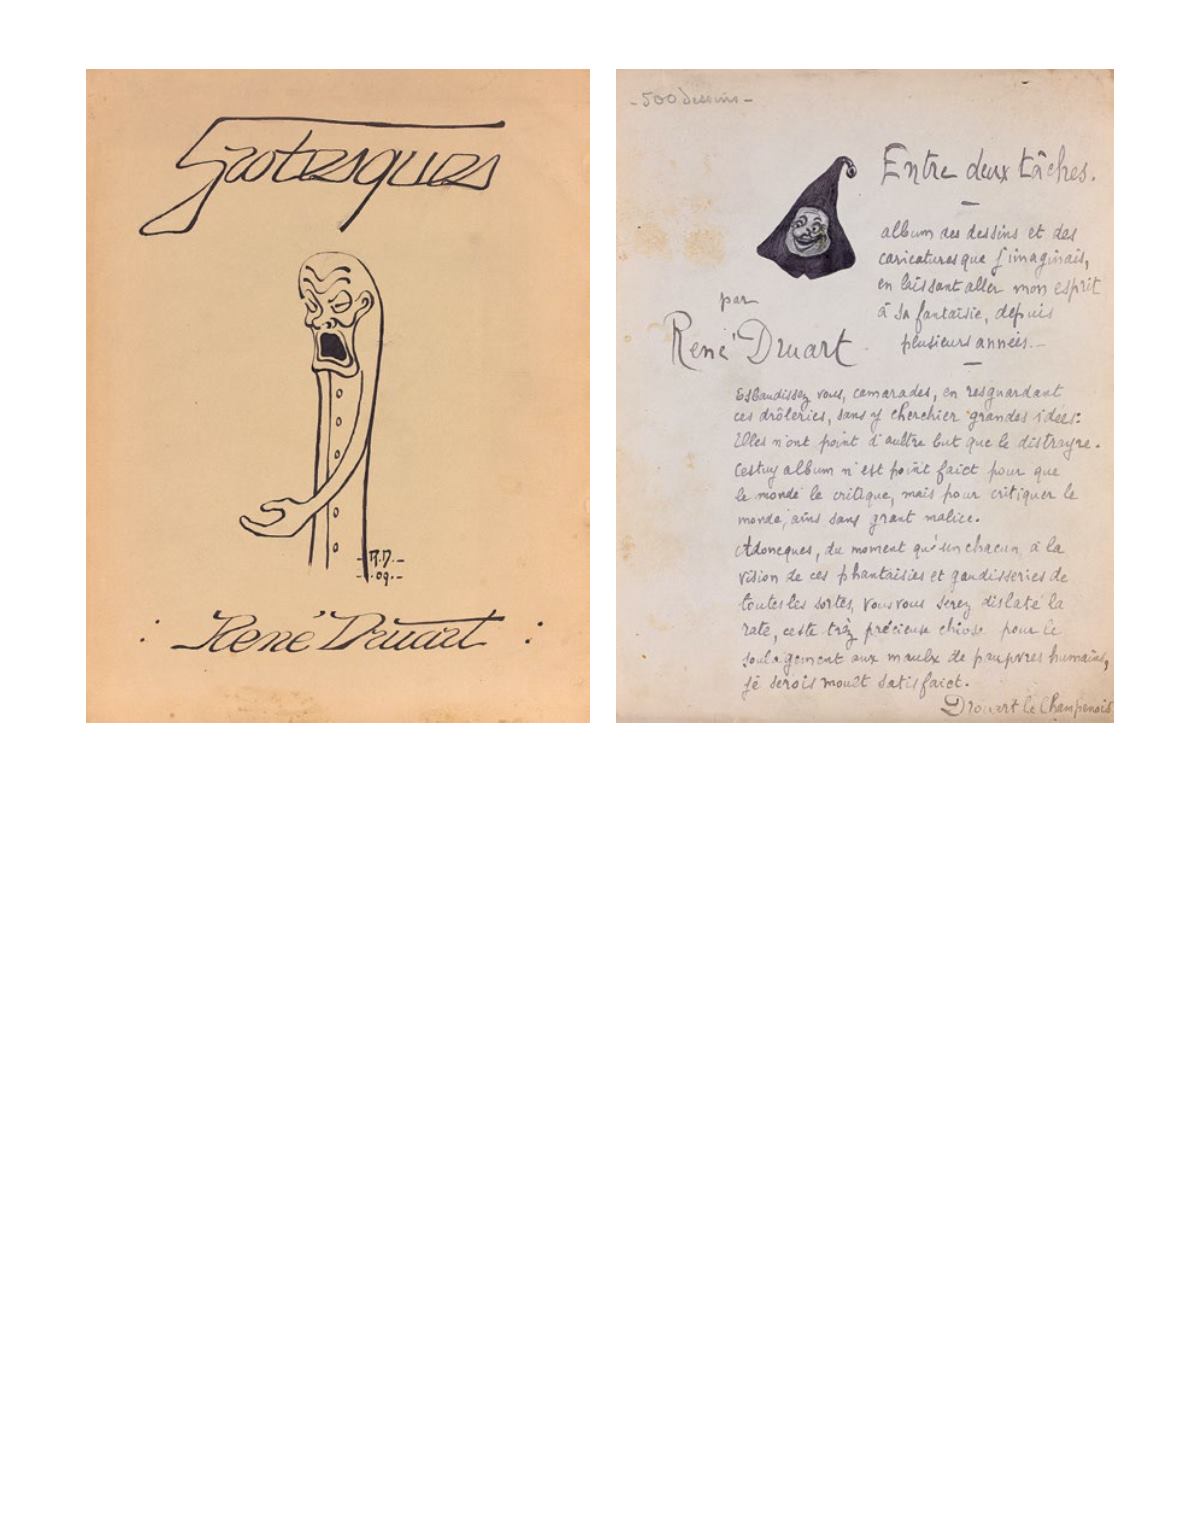 Grotesques
- R.D. -
- 09. -
: René Druart :
- 500 dessins -
Entre deux tâches.
album des dessins et des
caricatures que j'imaginais,
en laissant aller mon esprit
à sa fantaisie, depuis
plusieurs années.
par
René Druart
Esbaudissez vous, camarades, en resguardant
ces drôleries, sans y cherchier grandes idées:
Elles n'ont point d'aultre but que le distrayre.
Cestuy album n'est point faict pour que
le monde le critique, mais pour critiquer le
monde, ains sans grant malice.
Adoncques, du moment qu'un chacun, à la
vision de ces phantaisies et gaudisseries de
toutes les sortes, vous vous serez dislaté la
rate, ceste trèz précieuse chiose pour le
soulagement aux maulx de paupvres humains,
je serois moult satisfaict.
Drouart le Champenois